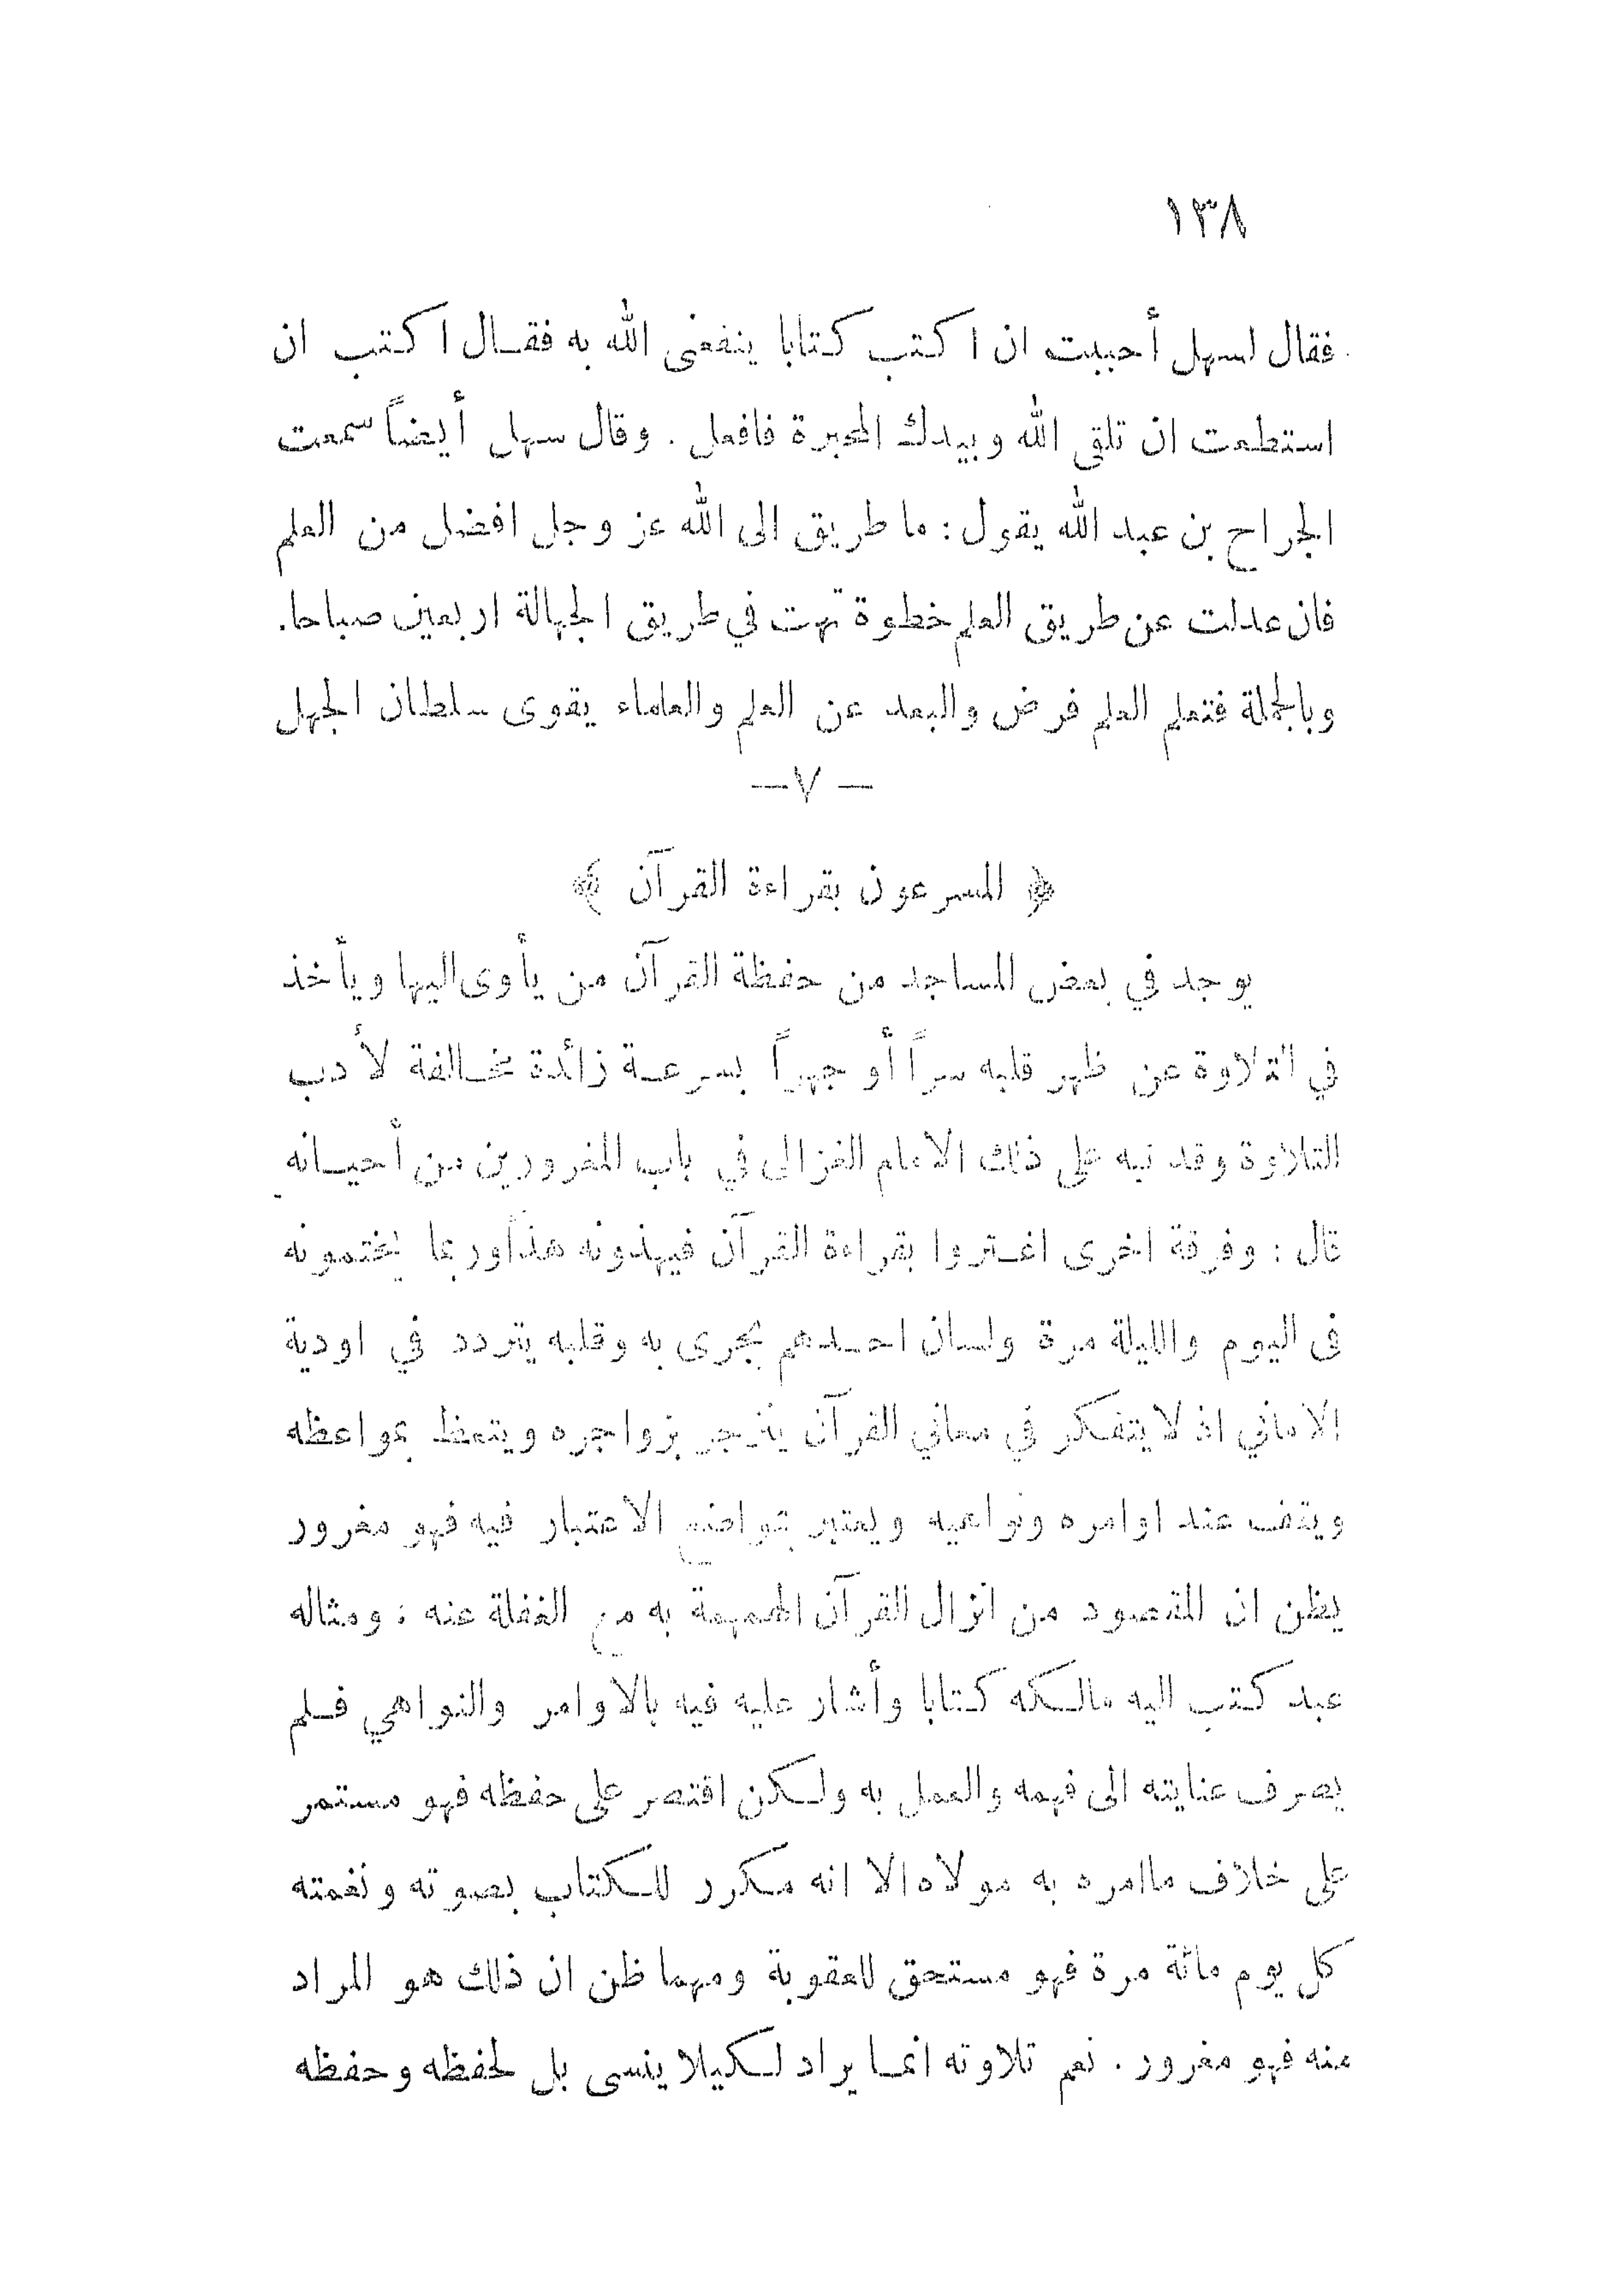 ١٣٨
فقال لسهل أحببت ان اكتب كتابا ينفعنى الله به فقال اكتب ان
استطعت ان تلقى الله وبيدك المحبرة فافعل . وقال سهل أيضاً سمعت
الجراح بن عبد الله يقول : ما طريق الى الله عز وجل افضل من العلم
فان عدلت عن طريق العلم خطوة تهت في طريق الجهالة اربعين صباحا .
وبالجملة فتعلم العلم فرض والبعد عن العلم والعلماء يقوى سلطان الجهل
— ٧ —
﴿ المسرعون بقراءة القرآن ﴾
يوجد في بعض المساجد من حفظة القرآن من يأوى اليها ويأخذ
في التلاوة عن ظهر قلبه سراً أو جهراً بسرعة زائدة مخالفة لأدب
التلاوة وقد نبه على ذلك الامام الغزالى في باب المغرورين من أحيائه
قال : وفرقة اخرى اغتروا بقراءة القرآن فيهذونه هذاً وربما يختمونه
فى اليوم والليلة مرة ولسان احدهم يجرى به وقلبه يتردد في اودية
الاماني اذ لا يتفكر في معاني القرآن ينزجر بزواجره ويتعظ بمواعظه
ويقف عند اوامره ونواهيه ويعتبر بمواضع الاعتبار فيه فهو مغرور
يظن ان المقصود من انزال القرآن الهمهمة به مع الغفلة عنه : ومثاله
عبد كتب اليه مالكه كتابا وأشار عليه فيه بالاوامر والنواهي فلم
يصرف عنايته الى فهمه والعمل به ولكن اقتصر على حفظه فهو مستمر
على خلاف ما امره به مولاه الا انه مكرر للكتاب بصوته ونغمته
كل يوم مائة مرة فهو مستحق للعقوبة ومهما ظن ان ذلك هو المراد
منه فهو مغرور . نعم تلاوته انما يراد لكيلا ينسى بل لحفظه وحفظه